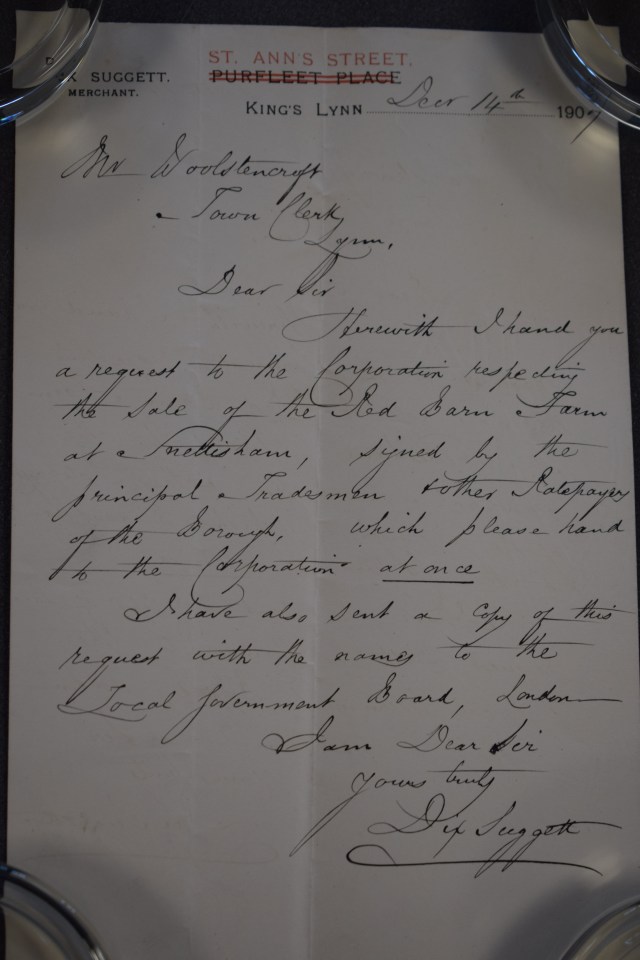 SUGGETT.
MERCHANT.
ST. ANN'S STREET.
PURFLEET PLACE
KING'S LYNN Decr 14th 1907
Mr Woolstencroft
Town Clerk
Lynn.
Dear Sir
Herewith I hand you
a request to the Corporation respecting
the Sale of the Red Barn Farm
at Snettisham, signed by the
principal Tradesmen & other Ratepayers
of the Borough, which please hand
to the Corporation at once
I have also sent a Copy of this
request with the names to the
Local Government Board, London
I am Dear Sir
yours truly
Dix Suggett